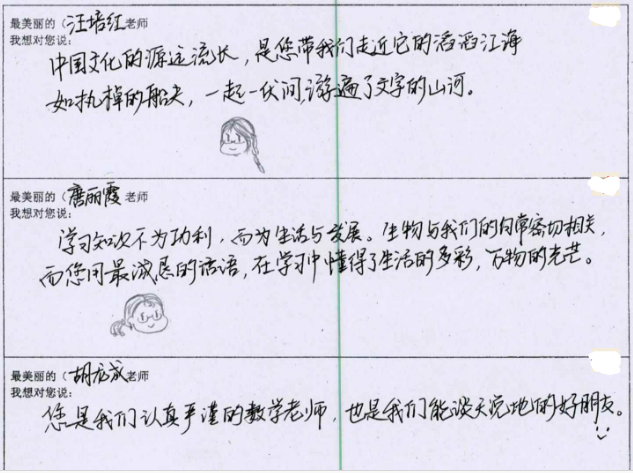 最美丽的（汪培红老师
我想对您说：
中国文化的源远流长，是您带我们走近它的滔滔江海
如执棹的船夫，一起一伏间，游遍了文字的山河。
最美丽的（唐丽霞老师
我想对您说：
学习知次不为功利，而为生活与发展。生物与我们的日常密切相关，
而您用最诚恳的话语，在学习中懂得了生活的多彩，万物的光芒。
最美丽的（胡龙成老师
我想对您说：
您是我们认真严谨的数学老师，也是我们能谈天说地的好朋友。